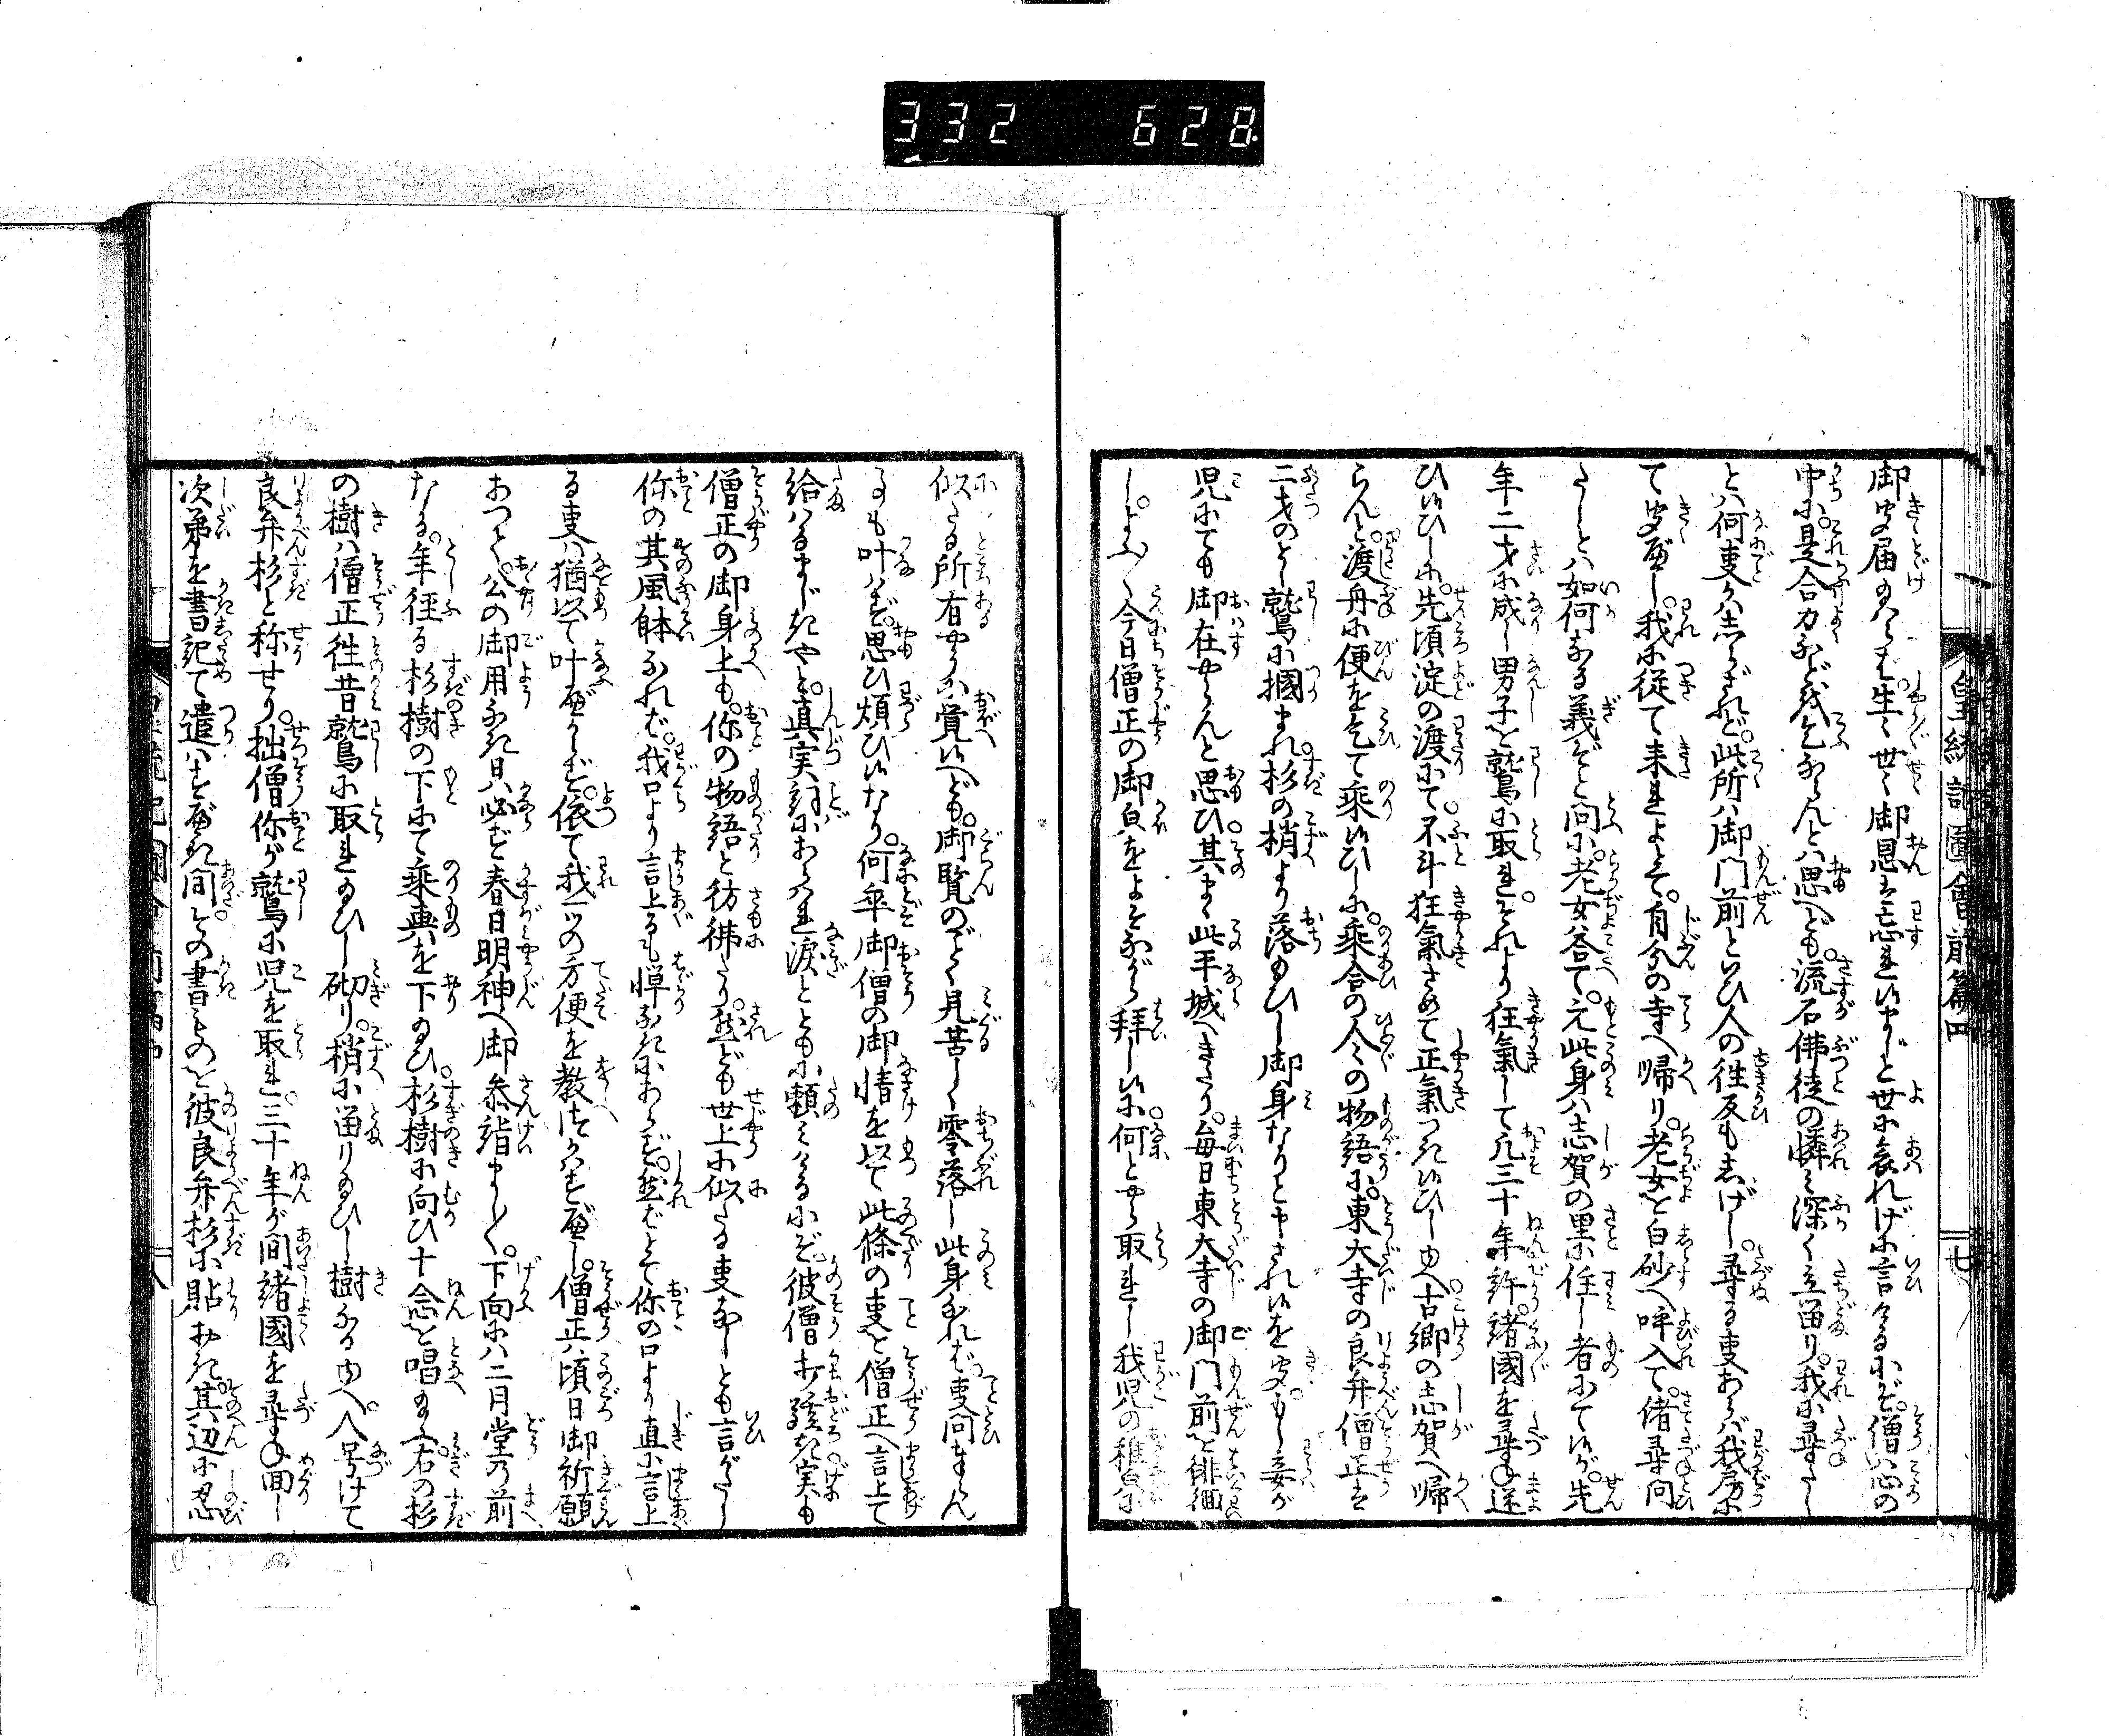 332 628
皇統記圖會前篇四
七
御聞届給らば生々世々御恩は忘れ候まじと世に哀れげに言けるにぞ僧心の
中に是合力など乞ならんとは思へども流石佛徒の憐み深く立留り我に尋たし
とは何事かは志らざれど此所は御門前といひ人の往反も志げし尋る事あらば我房に
て聞べし我に從て來れよとて自分の寺へ帰り老女を白砂へ呼入て偖尋問
たしとは如何なる義ぞと問に老女答て元此身は志賀の里に住し者にて候が先
年二才に成し男子を鷲に取れそれより狂氣して凡三十年許諸國を尋ね迷
ひ候ひしに先頃淀の渡にて不斗狂氣さめて正氣つき候ひしゆへ古郷の志賀へ帰
らんと渡舟に便を乞て乘候ひしに乘合の人々の物語に東大寺の良弁僧正は
二才のとし鷲に摑まれ杉の梢より落給ひし御身なりと申され候を聞もし妾が
児にても御在やらんと思ひ其まゝ此平城へきたり毎日東大寺の御門前を徘徊
しよふ〱今日僧正の御皃をよそながら拝し候に何とやら取れし我児の稚皃に
似たる所有やうに覚候へども御覧のごとく見苦しく零落し此身なれば事問まゐらん
事も叶はず思ひ煩ひ候なり何卒御僧の御情を以て此條の事を僧正へ言上て
給はるまじきやと真実面にあらはれ涙とともに頼みけるにぞ彼僧打驚き実も
僧正の御身上も你の物語と彷彿たり然ども世上に似たる事なしとも言がたし
你の其風体なれば我口より言上るも憚なきにあらず然ばとて你の口より直に言上
る事は猶以て叶べからず依て我一ツの方便を教遣はすべし僧正は頃日御祈願
あつて公の御用なき日は必ず春日明神へ御參詣まし〱下向には二月堂の前
なる年経る杉樹の下にて乘輿を下給ひ杉樹に向ひ十念を唱給ふ右の杉
の樹は僧正徃昔鷲に取れ給ひし砌り梢に留り給ひし樹なるゆへ人号けて
良弁杉と称せり拙僧你が鷲に児を取れ三十年が間諸國を尋ね回し
次第を書記て遣はすべき間その書ものを彼良弁杉に貼おき其辺に忍
八